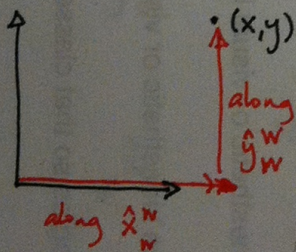 (x,y)
along
ŷ^W_W
along x̂^W_W